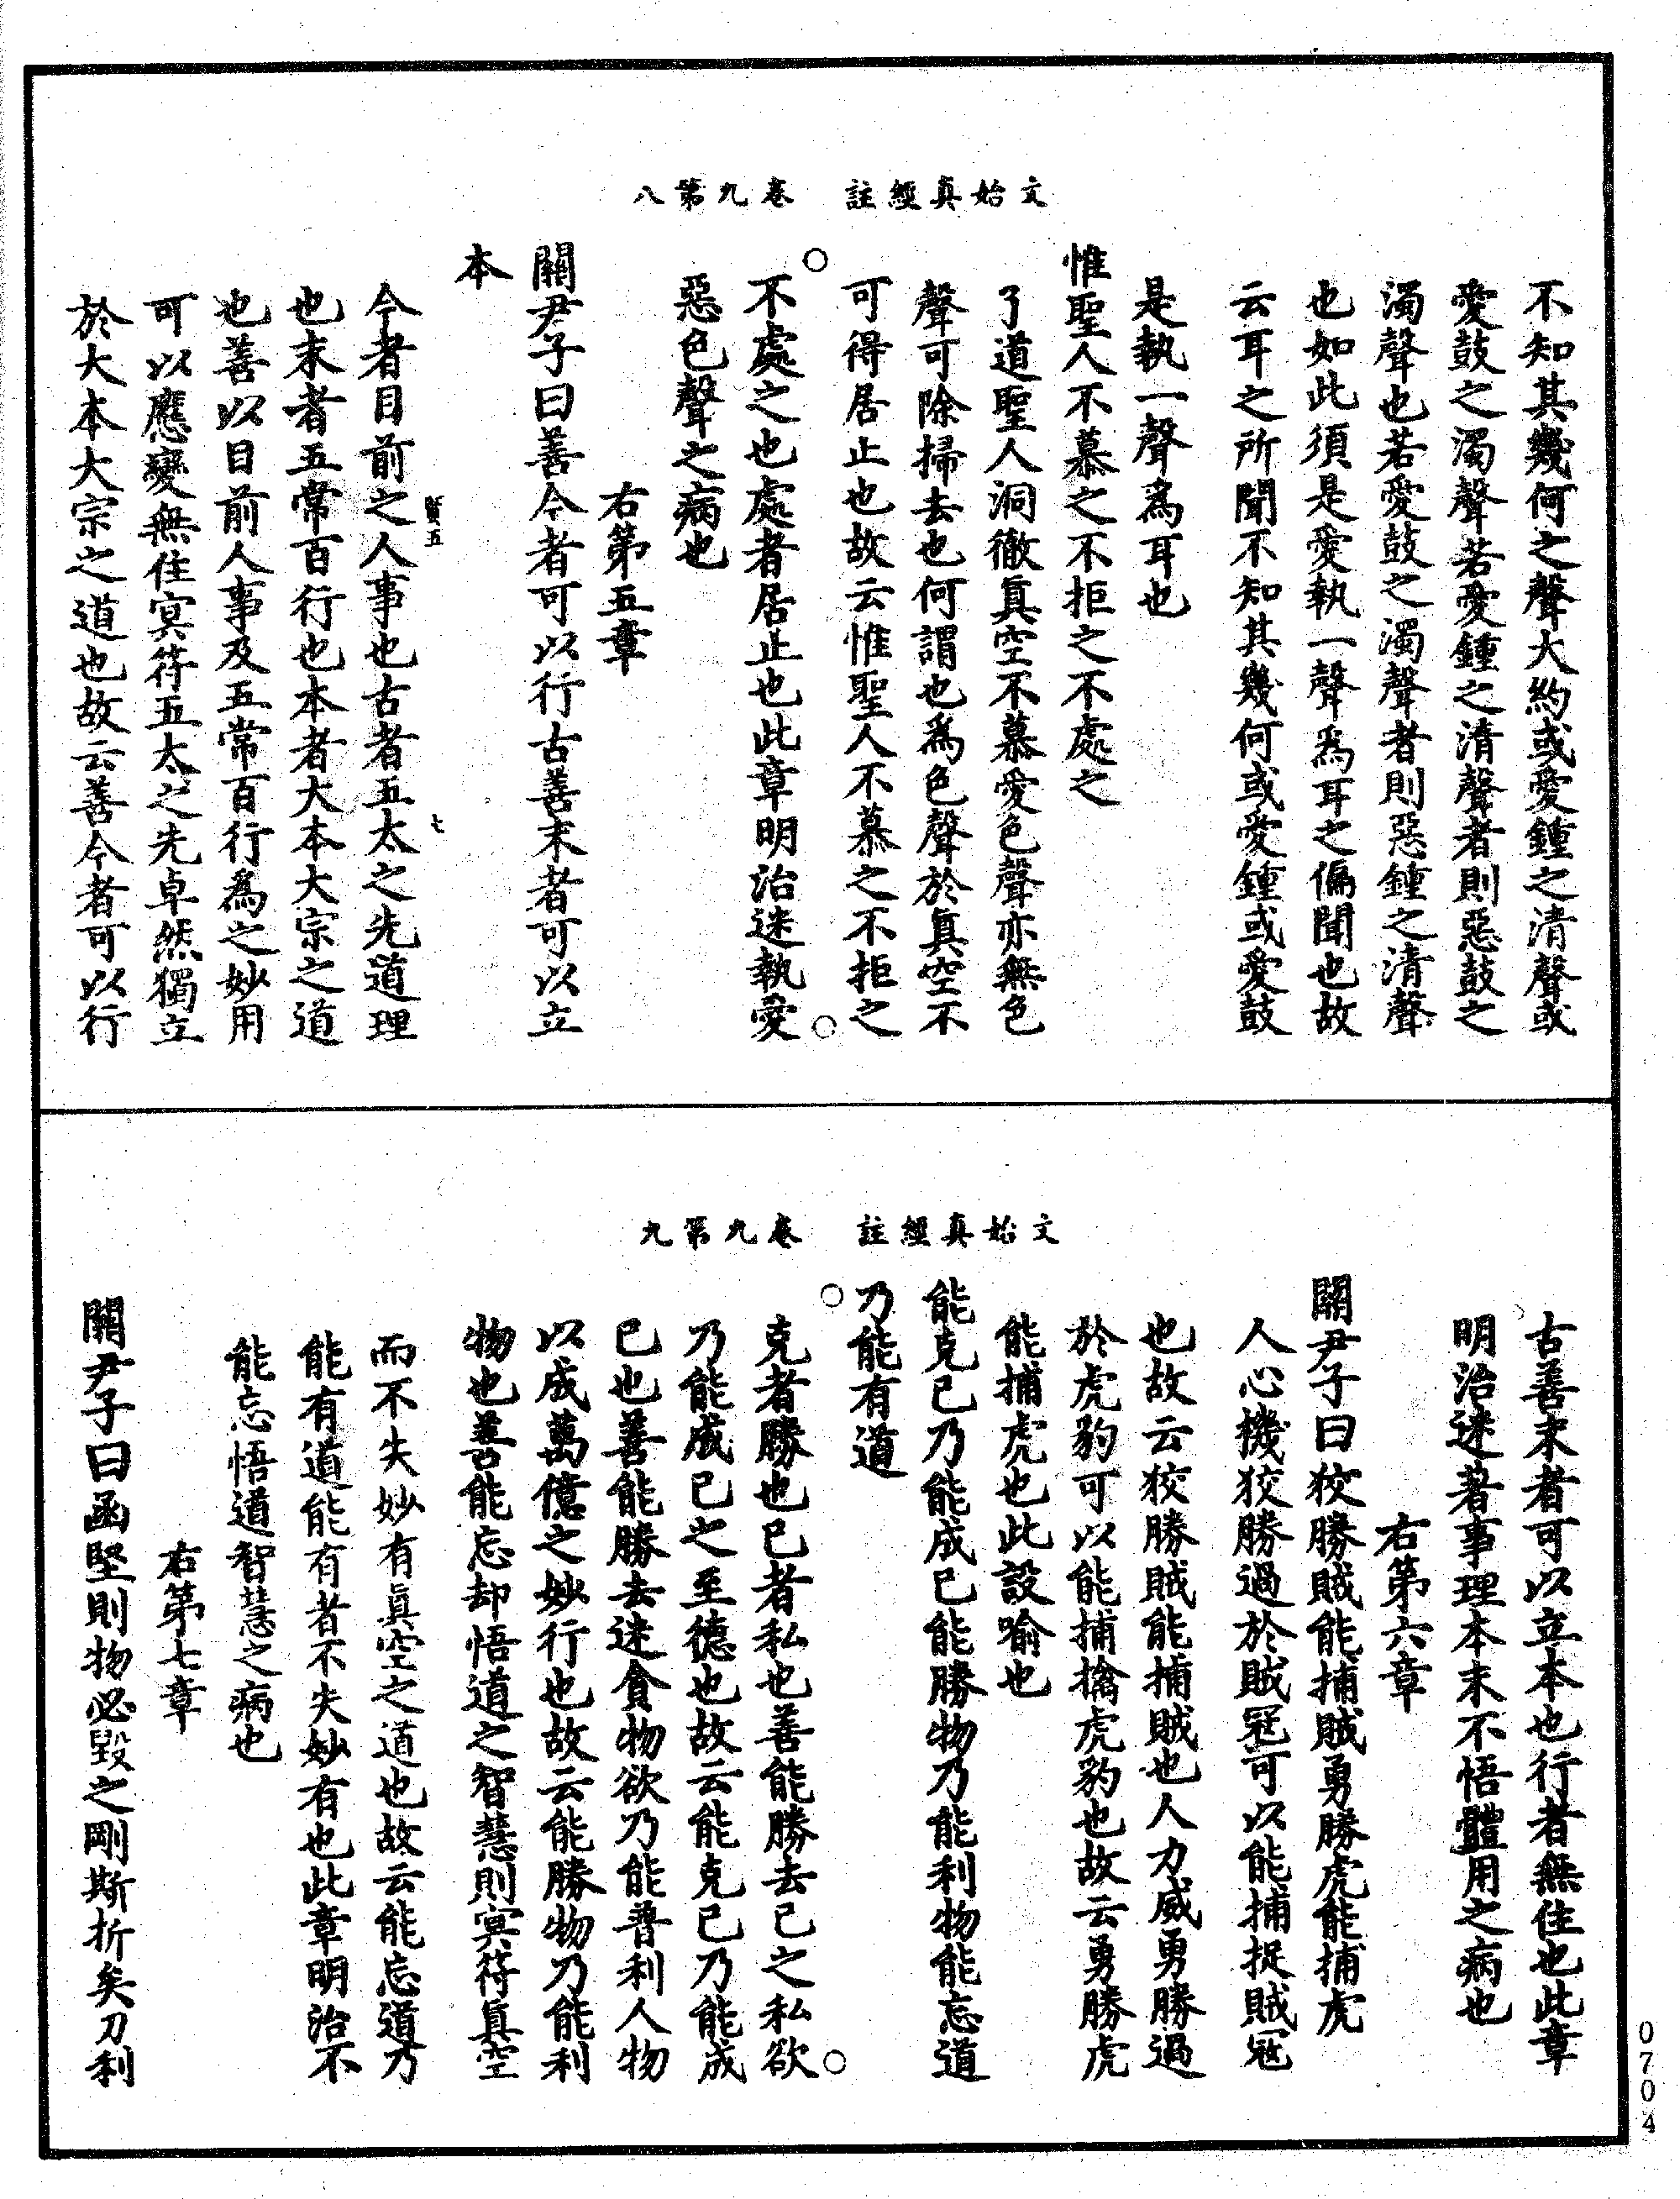 文始真經註　卷九第八
不知其幾何之聲大約或愛鍾之清聲或
愛鼓之濁聲若愛鍾之清聲者則惡鼓之
濁聲也若愛鼓之濁聲者則惡鍾之清聲
也如此須是愛執一聲爲耳之偏聞也故
云耳之所聞不知其幾何或愛鍾或愛鼓
是執一聲爲耳也
惟聖人不慕之不拒之不處之
了道聖人洞徹真空不慕愛色聲亦無色
聲可除掃去也何謂也爲色聲於真空不
可得居止也故云惟聖人不慕之不拒之
不處之也處者居止也此章明治迷執愛
惡色聲之病也
右第五章
關尹子曰善今者可以行古善末者可以立
本
賢五　七
今者目前之人事也古者五太之先道理
也末者五常百行也本者大本大宗之道
也善以目前人事及五常百行爲之妙用
可以應變無住冥符五太之先卓然獨立
於大本大宗之道也故云善今者可以行
文始真經註　卷九第九
古善末者可以立本也行者無住也此章
明治迷著事理本末不悟體用之病也
右第六章
關尹子曰狡勝賊能捕賊勇勝虎能捕虎
人心機狡勝過於賊冦可以能捕捉賊冦
也故云狡勝賊能捕賊也人力威勇勝過
於虎豹可以能捕擒虎豹也故云勇勝虎
能捕虎也此設喻也
能克己乃能成己能勝物乃能利物能忘道
乃能有道
克者勝也己者私也善能勝去己之私欲
乃能成己之至德也故云能克己乃能成
己也善能勝去迷貪物欲乃能普利人物
以成萬億之妙行也故云能勝物乃能利
物也善能忘却悟道之智慧則冥符真空
而不失妙有真空之道也故云能忘道乃
能有道能有者不失妙有也此章明治不
能忘悟道智慧之病也
右第七章
關尹子曰函堅則物必毀之剛斯折矣刀利
0704